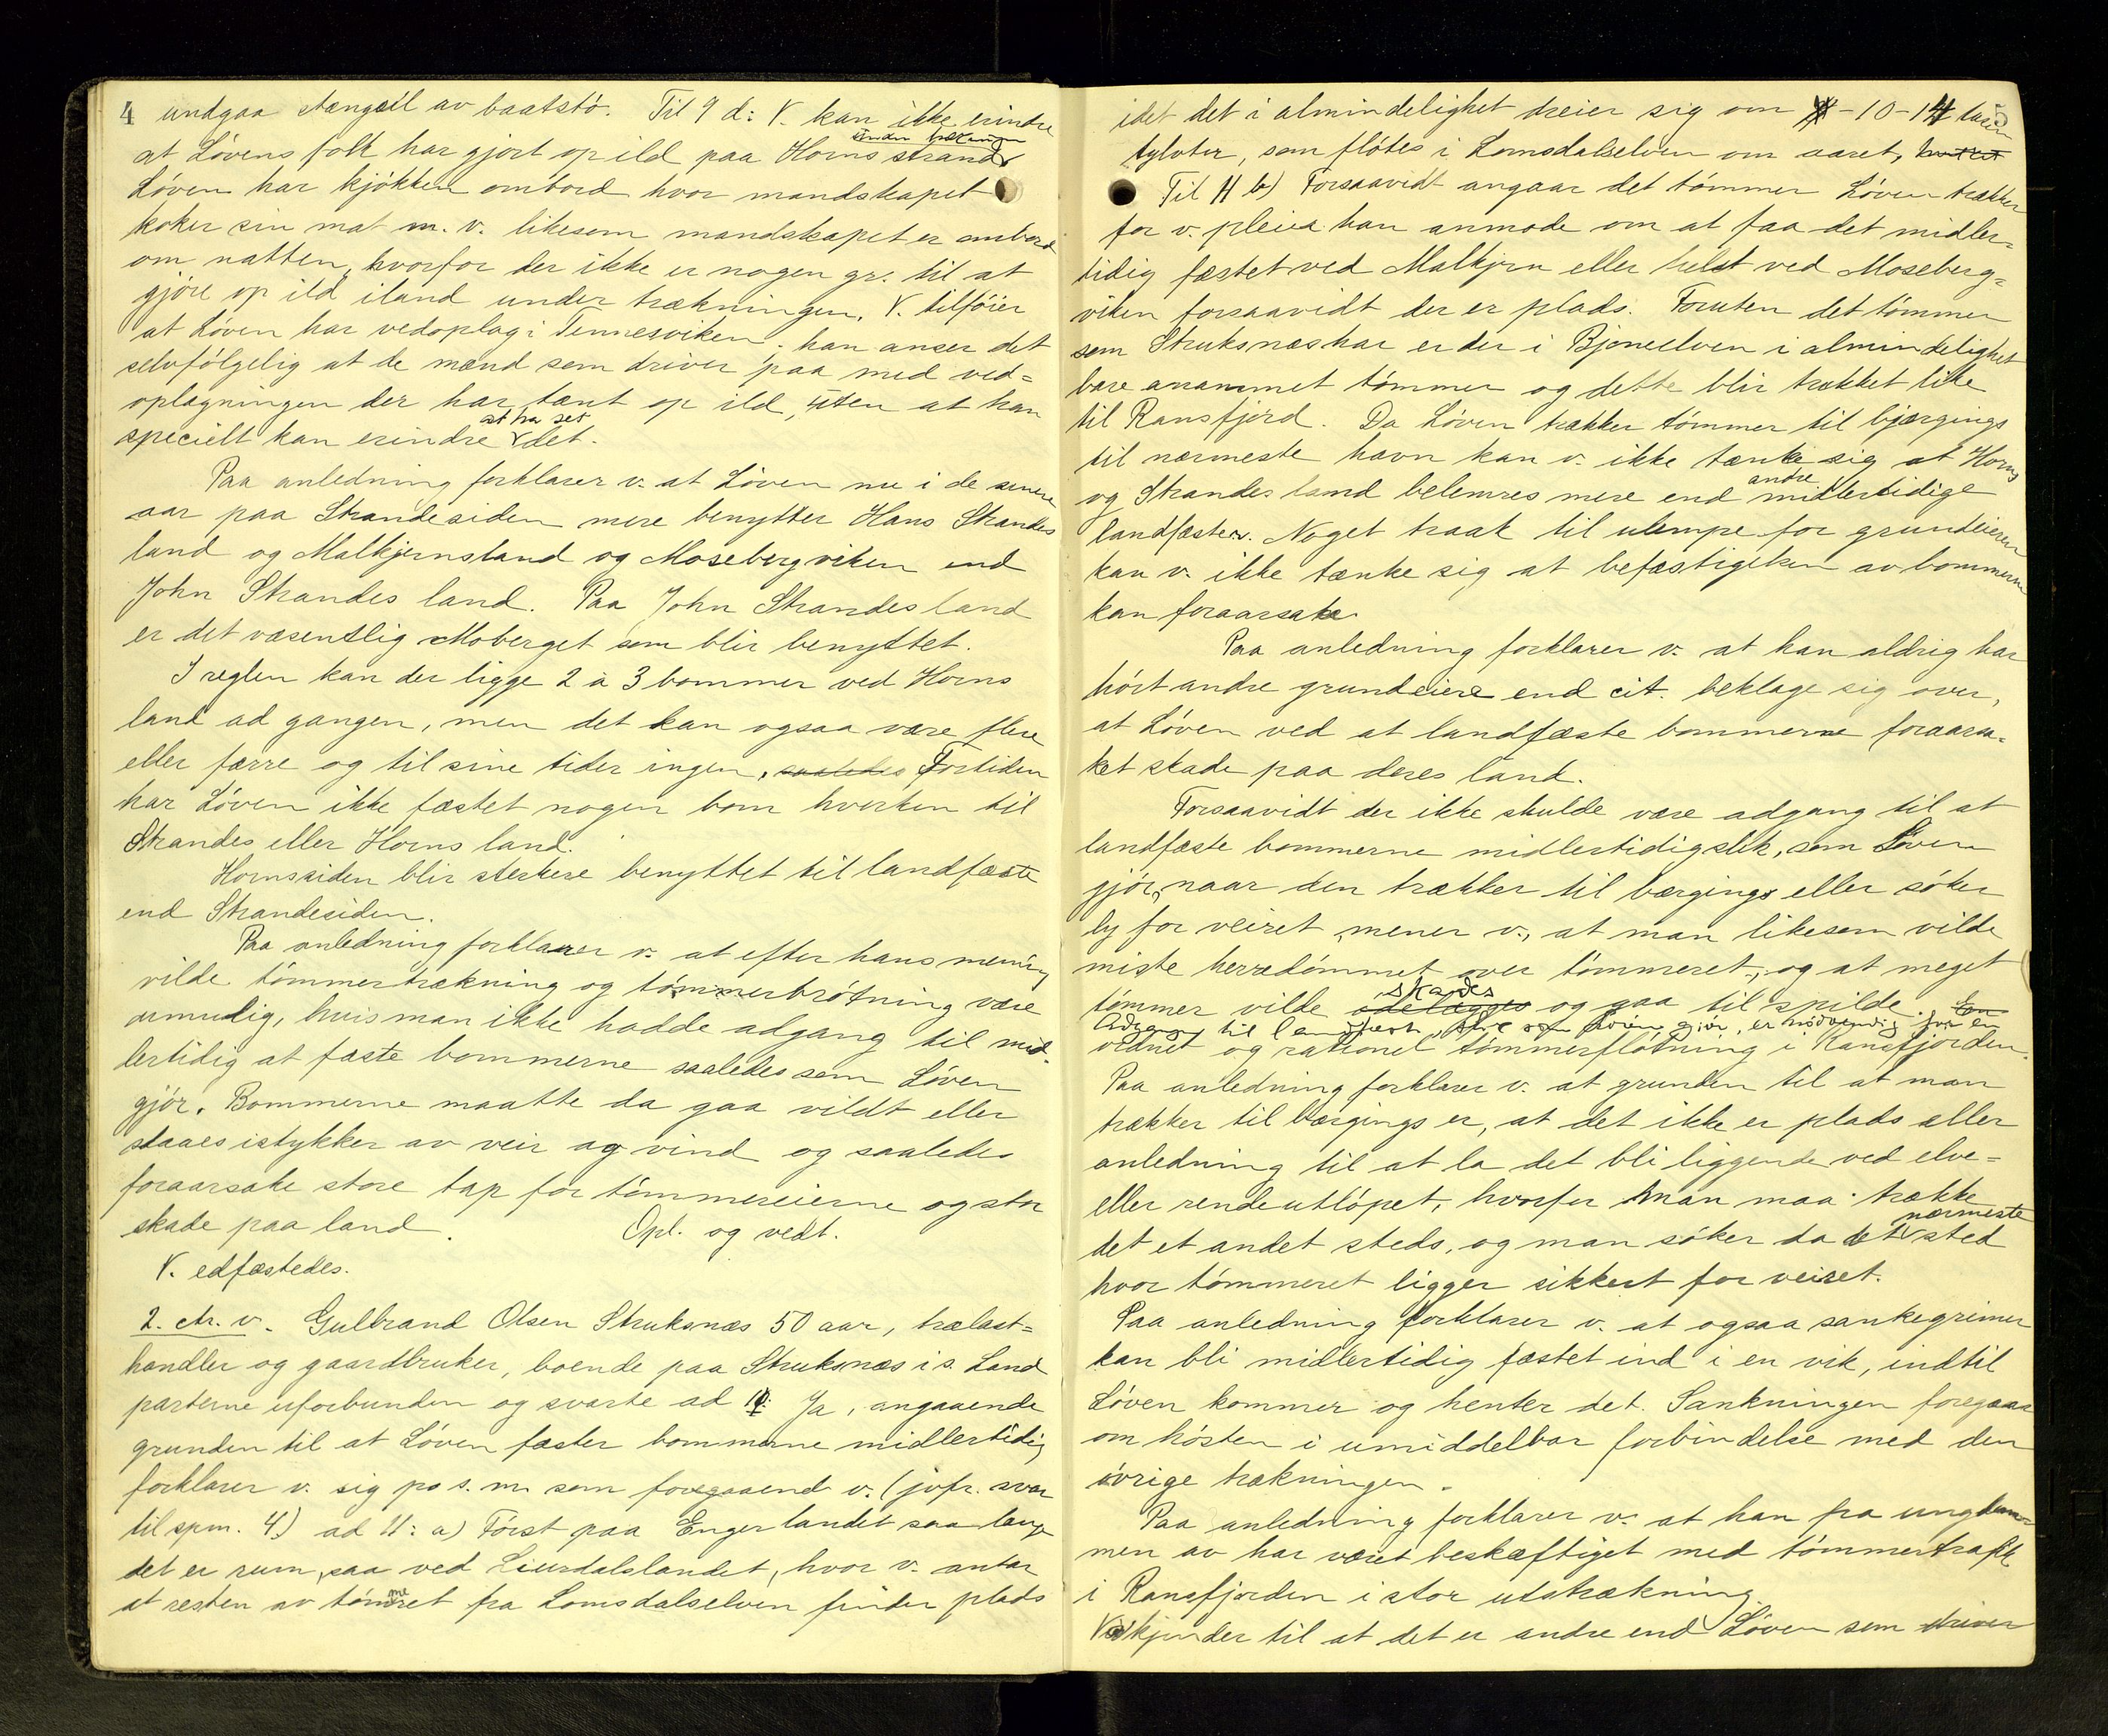 4 undgaa stængsel av baatstö. Til 9 d: V. kan ikke erindre
at Löven's folk har gjort op ild paa Horns strand under trækningen
Löven har kjökken ombord hvor mandskapet
koker sin mat m. v. likesom mandskapet er ombord
om natten, hvorfor der ikke er nogen gr. til at
gjöre op ild iland under trækningen. V. tilföier
at Löven har vedoplag i Tennesviken. han anser det
selvfölgelig at de mænd som driver paa med ved=
oplægningen der har tænt op ild, uten at han
specielt kan erindre at ha set det.
Paa anledning forklarer v. at Löven nu i de senere
aar paa Strandesiden mere benytter Hans Strandes
land og Malkjernsland og Mosebergviken end
John Strandes land. Paa John Strandes land
er det væsentlig Moberget som blir benyttet.
I reglen kan der ligge 2 à 3 bommer ved Horns
land ad gangen, men det kan ogsaa være flere
eller færre og til sine tider ingen. saaledes Fortiden
har Löven ikke fæstet nogen bom hverken til
Strandes eller Horns land.
Hornssiden blir sterkere benyttet til landfæste
end Strandesiden.
Paa anledning forklarer v. at efter hans mening
vilde tömmertrækning og tömmerbrötning være
umulig, hvis man ikke hadde adgang til mid-
lertidig at fæste bommerne saaledes som Löven
gjör. Bommerne maatte da gaa vildt eller
slaaes istykker av veir og vind og saaledes
foraarsake store tap for tömmereierne og stor
skade paa land. Opl. og vedt.
V. edfæstedes.
2. ctr. v. Gulbrand Olsen Struksnæs 50 aar, trælast=
handler og gaardbruker, boende paa Struksnæs i s. Land
parterne uforbunden og svarte ad 10: Ja, angaaende
grunden til at Löven fæster bommerne midlertidig
forklarer v. sig pa s. m. som foregaaende v. (jvfr. svar
til spm. 4.) ad 11: a) Först paa Enger landet saa længe
det er rum, saa ved Liurdalslandet, hvor v. antar
at resten av tömmeret fra Lomsdalselven finder plads
idet det i almindelighet dreier sig om 8-10-14 tusen
tylvter, som flötes i Lomsdalselven om aaret,
Til 11 b) Forsaavidt angaar det tömmer Löven trækker
for v. pleiea han anmode om at faa det midler=
tidig fæstet ved Malkjern eller helst ved Moseberg=
viken forsaavidt der er plads. Foruten det tömmer
som Struksnæs har er der i Bjoneelven i almindelighet
bare anammet tömmer og dette blir trækket like
til Ransfjord. Da Löven trækker tömmer til bjærgings
til nærmeste havn kan v. ikke tænke sig at Horns
og Strandes land belemres mere end andre midlertidige
landfæster. Noget traak til ulempe for grundeieren
kan v. ikke tænke sig at befæstigelsen av bommerne
kan foraarsake.
Paa anledning forklarer v. at han aldrig har
hört andre grundeiere end cit. beklage sig over,
at Löven ved at landfæste bommerne foraarsa-
ket skade paa deres land.
Forsaavidt der ikke skulde være adgang til at
landfæste bommerne midlertidig slik, som Löven
gjör, naar den trækker til bærgings eller söker
ly for veiret, mener v., at man likesom vilde
miste herredömmet over tömmeret, og at meget
tömmer vilde ödelægges skades og gaa til spilde. En
Adgang til landfæste, slik som Löven gjör, er nödvendig for en
ordnet og rationel tömmerflötning i Ransfjorden.
Paa anledning forklarer v. at grunden til at man
trækker til bærgings er, at det ikke er plads eller
anledning til at la det bli liggende ved elve=
eller rendeutlöpet, hvorfor man maa trække
det et andet steds, og man söker da det nærmeste sted
hvor tömmeret ligger sikkert for veiret.
Paa anledning forklarer v. at ogsaa sankegrimer
kan bli midlertidig fæstet ind i en vik, indtil
Löven kommer og henter det. Sankningen foregaar
om hösten i umiddelbar forbindelse med den
övrige trækningen.
Paa anledning forklarer v. at han fra ungdom-
men av har været beskjæftiget med tömmertrafik
i Ransfjorden i stor utstrækning.
V. kjender til at det er andre end Löven som driver